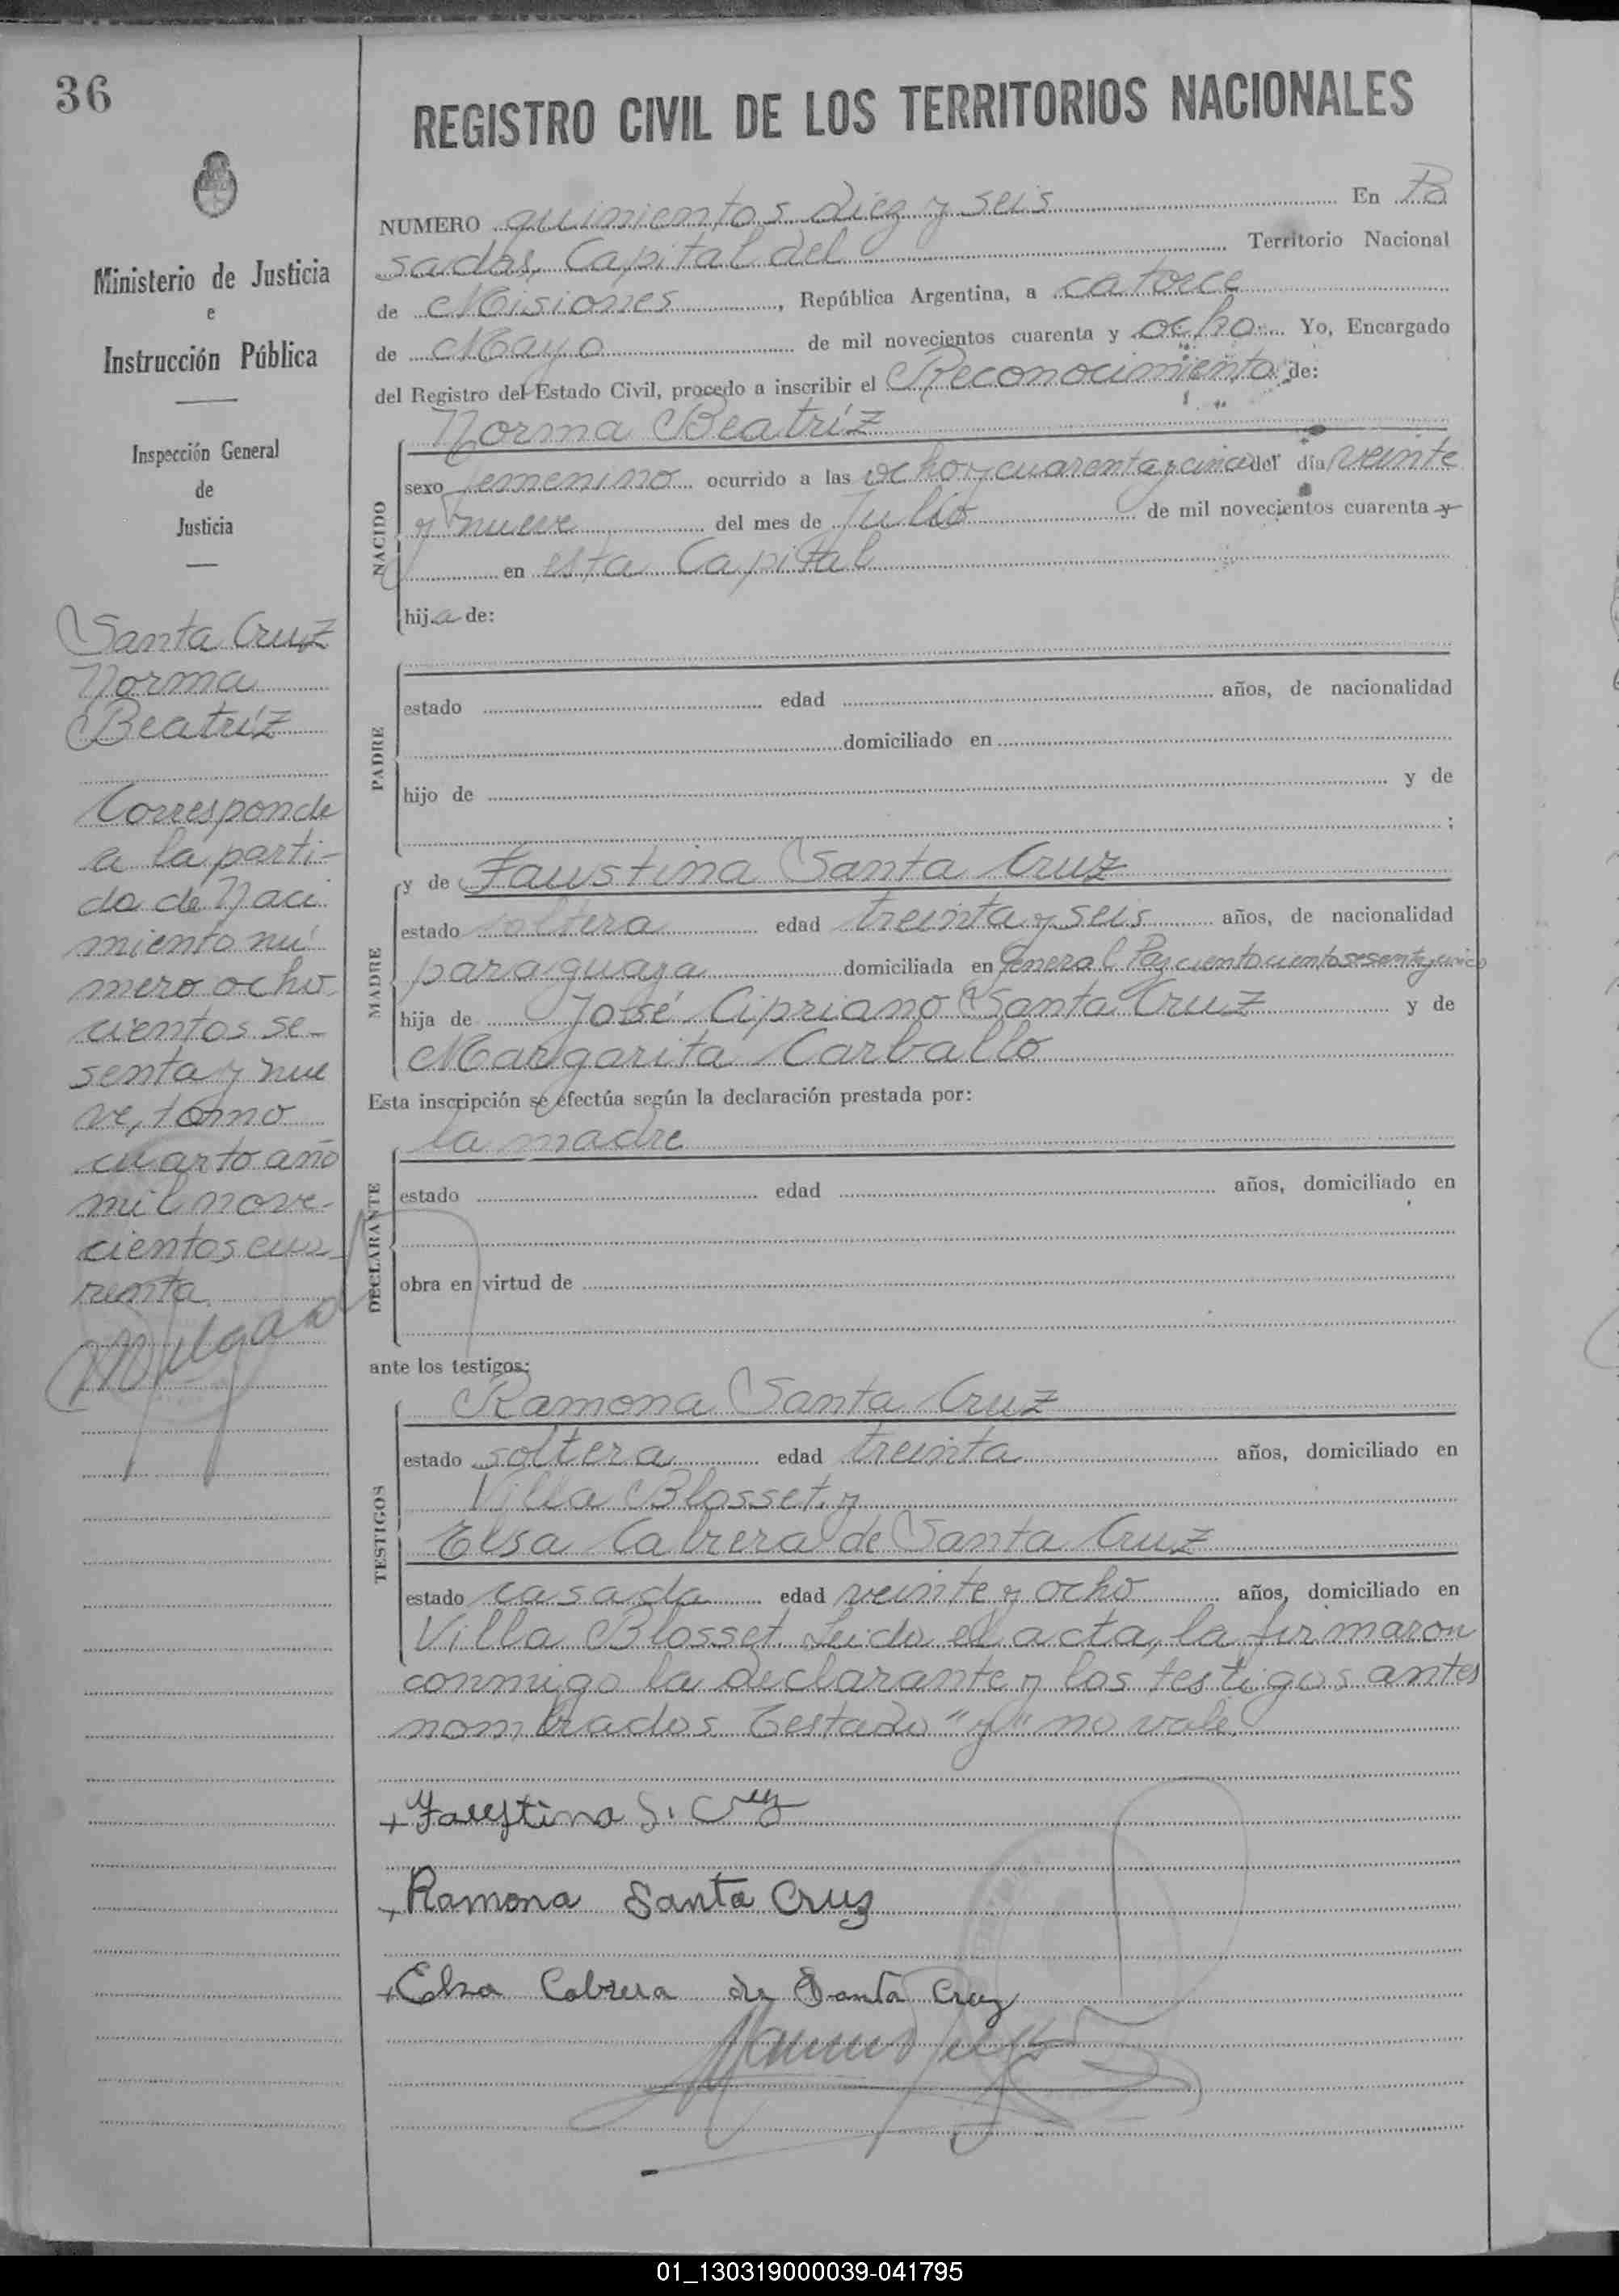 36
REGISTRO CIVIL DE LOS TERRITORIOS NACIONALES
Ministerio de Justicia
e
Instrucción Pública
Inspección General
de
Justicia
Santa Cruz
Norma
Beatríz
Corresponde
a la parti-
da de Naci
miento nú
mero ocho
cientos se-
senta y nue
ve, tomo
cuarto año
mil nove-
cientos cua-
renta
NUMERO quinientos diez y seis En Po
sadas, Capital del Territorio Nacional
de Misiones, República Argentina, a catorce
de Mayo de mil novecientos cuarenta y ocho Yo, Encargado
del Registro del Estado Civil, procedo a inscribir el Reconocimiento de:
NACIDO
Norma Beatríz
sexo femenino ocurrido a las ocho y cuarenta y cinco del día veinte
y nueve del mes de Julio de mil novecientos cuarenta y
en esta Capital
hija de:
PADRE
estado edad años, de nacionalidad
domiciliado en
hijo de y de
;
MADRE
y de Faustina Santa Cruz
estado soltera edad treinta y seis años, de nacionalidad
paraguaya domiciliada en General Paz ciento ciento sesenta y cinco
hija de José Cipriano Santa Cruz y de
Margarita Carballo
Esta inscripción se efectúa según la declaración prestada por:
DECLARANTE
la madre
estado edad años, domiciliado en
obra en virtud de
ante los testigos:
TESTIGOS
Ramona Santa Cruz
estado soltera edad treinta años, domiciliado en
Villa Blosset, y
Elsa Cabrera de Santa Cruz
estado casada edad veinte y ocho años, domiciliado en
Villa Blosset. Leido el acta, la firmaron
conmigo la declarante y los testigos antes
nombrados Testado "y" no vale.
+ Faustina S. Cruz
+ Ramona Santa Cruz
+ Elsa Cabrera de Santa Cruz
01_130319000039-041795